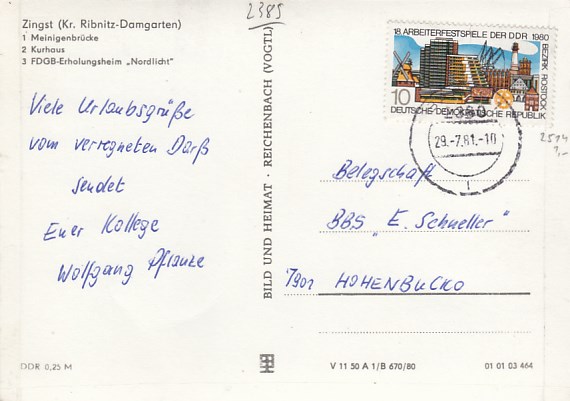 2385
Zingst (Kr. Ribnitz-Damgarten)
1 Meinigenbrücke
2 Kurhaus
3 FDGB-Erholungsheim „Nordlicht"
Viele Urlaubsgrüße
vom verregneten Darß
sendet
Euer Kollege
Wolfgang Pflanze
BILD UND HEIMAT · REICHENBACH (VOGTL)
18. ARBEITERFESTSPIELE DER DDR 1980
BEZIRK ROSTOCK
10
DEUTSCHE DEMOKRATISCHE REPUBLIK
29.-7.81.-10
2514
1,-
Belegschaft
BBS „E. Schneller"
7901 HOHENBUCKO
DDR 0,25 M
V 11 50 A 1/B 670/80
01 01 03 464